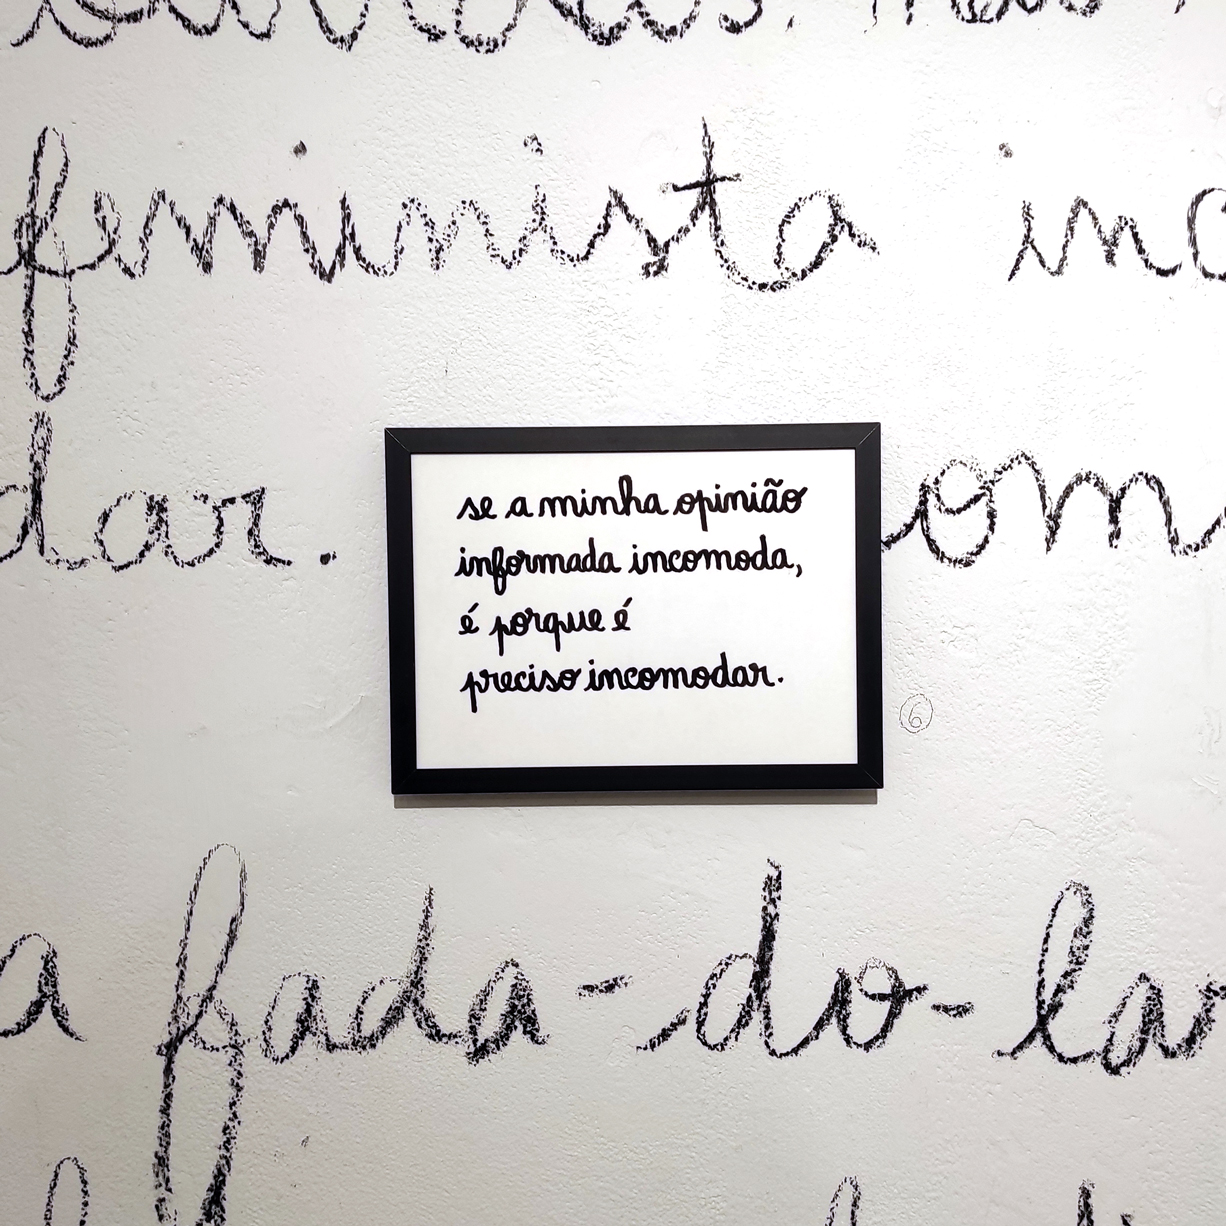 feminista
dar.
se a minha opinião
informada incomoda,
é porque é
preciso incomodar.
6
a fada-do-lar